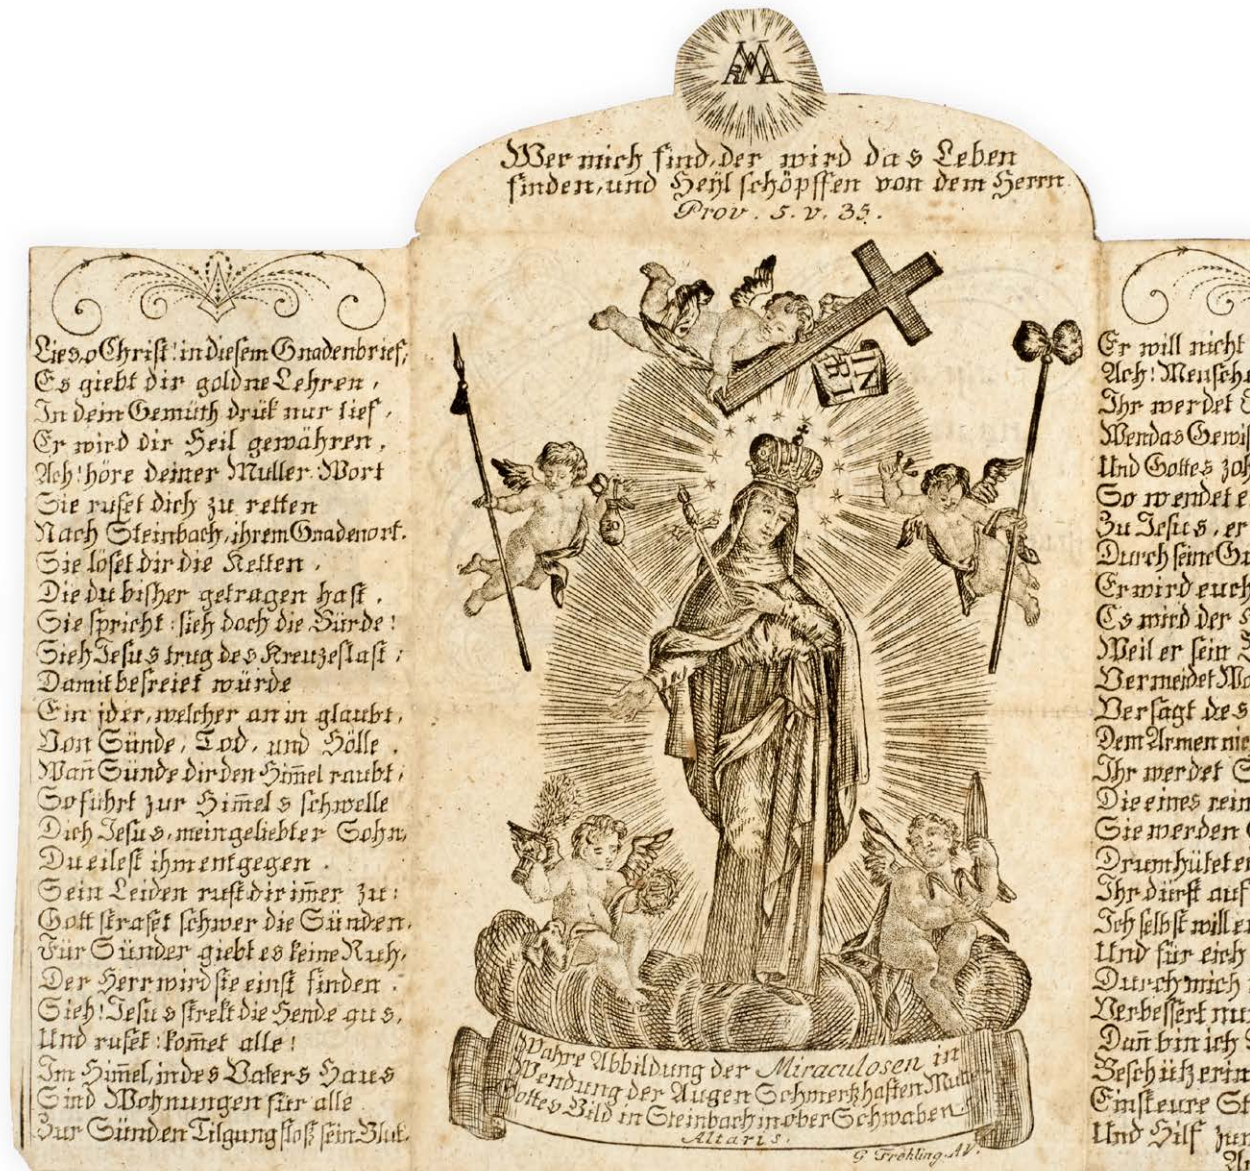 MARIA
Wer mich find, der wird das Leben
finden, und Heÿl schöpffen von dem Herrn
Prov. 5. v. 35.
Lies, o Christ! in diesem Gnadenbrief,
Es giebt dir goldne Lehren,
In dein Gemüth drük nur tief,
Er wird dir Heil gewähren.
Ach! höre deiner Mutter Wort
Sie rufet dich zu retten
Nach Steinbach, ihrem Gnadenort.
Sie löset dir die Ketten,
Die du bisher getragen hast.
Sie spricht: sieh doch die Bürde!
Sieh Jesus trug des Kreuzeslast;
Damit befreiet würde
Ein jder, welcher an in glaubt,
Von Sünde, Tod, und Hölle.
Wañ Sünde dir den Him̃el raubt,
So führt zur Him̃els schwelle
Dich Jesus, mein geliebter Sohn,
Du eilest ihm entgegen.
Sein Leiden ruft dir im̃er zu:
Gott strafet schwer die Sünden.
Für Sünder giebt es keine Ruh,
Der Herr wird sie einst finden.
Sieh! Jesus strekt die Hende aus,
Und rufet: kom̃et alle!
Im Him̃el, in des Vaters Haus
Sind Wohnungen für alle
Zur Sünden Tilgung floß sein Blut.
INRI
30
Wahre Abbildung der Miraculosen in
Wendung der Augen Schmertzhaften Mutter
Gottes Bild in Steinbach in ober Schwaben.
Altaris.
G Frehling. A.V.
Er will nicht
Ach! Mensche
Ihr werdet
Wen das Gewis
Und Gottes zoh
So wendet e
Zu Jesus, er
Durch seine Gu
Er wird euch
Es wird der
Weil er sein
Vermeidet Wo
Versagt des
Dem Armen nie
Ihr werdet
Die eines rein
Sie werden
Drum hütet ei
Ihr dürft auf
Ich selbst will e
Und für eich
Durch mich
Verbessert nu
Dañ bin ich
Beschützerin
Einst eure St
Und Hilf zum